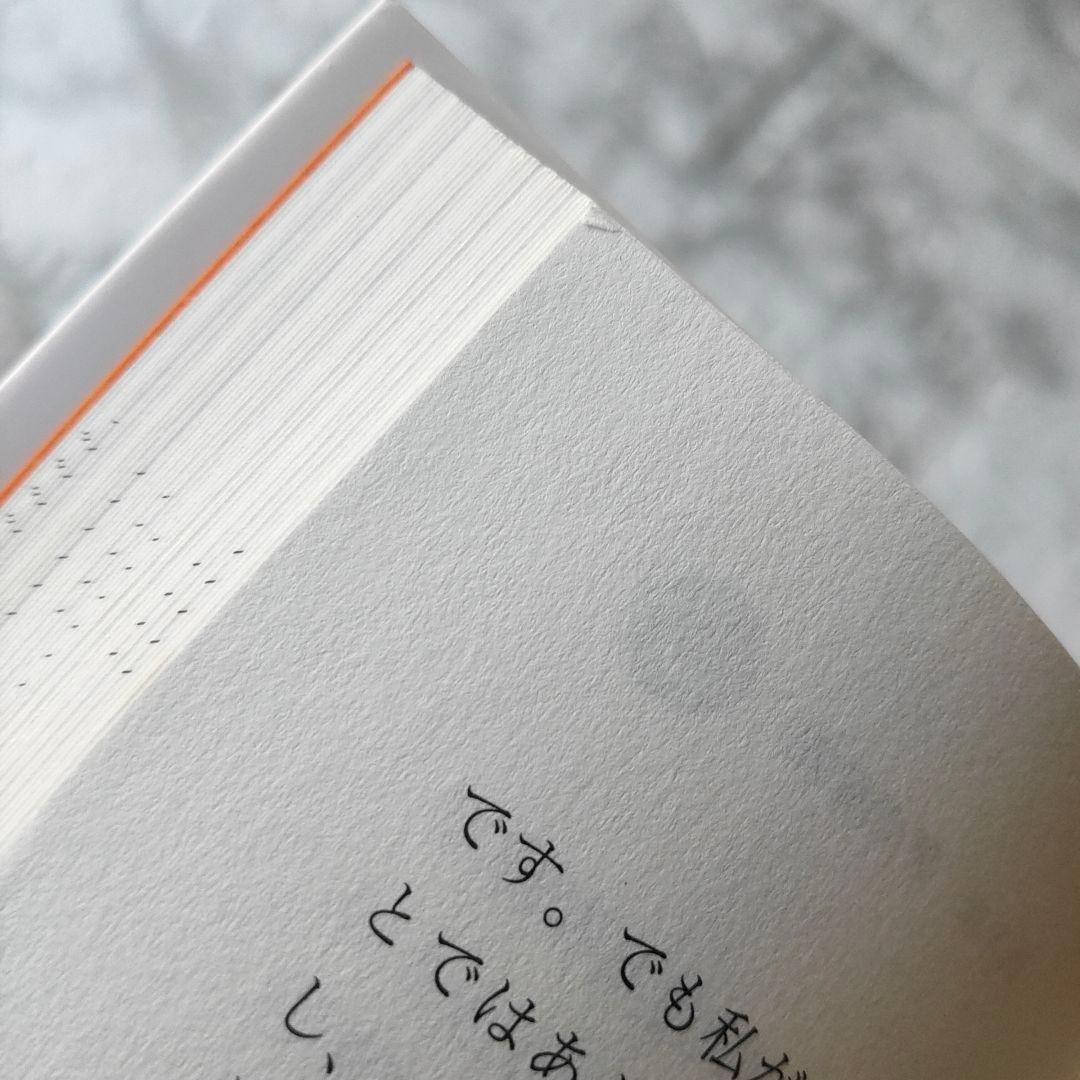 です。でも私が
とではあ
し、